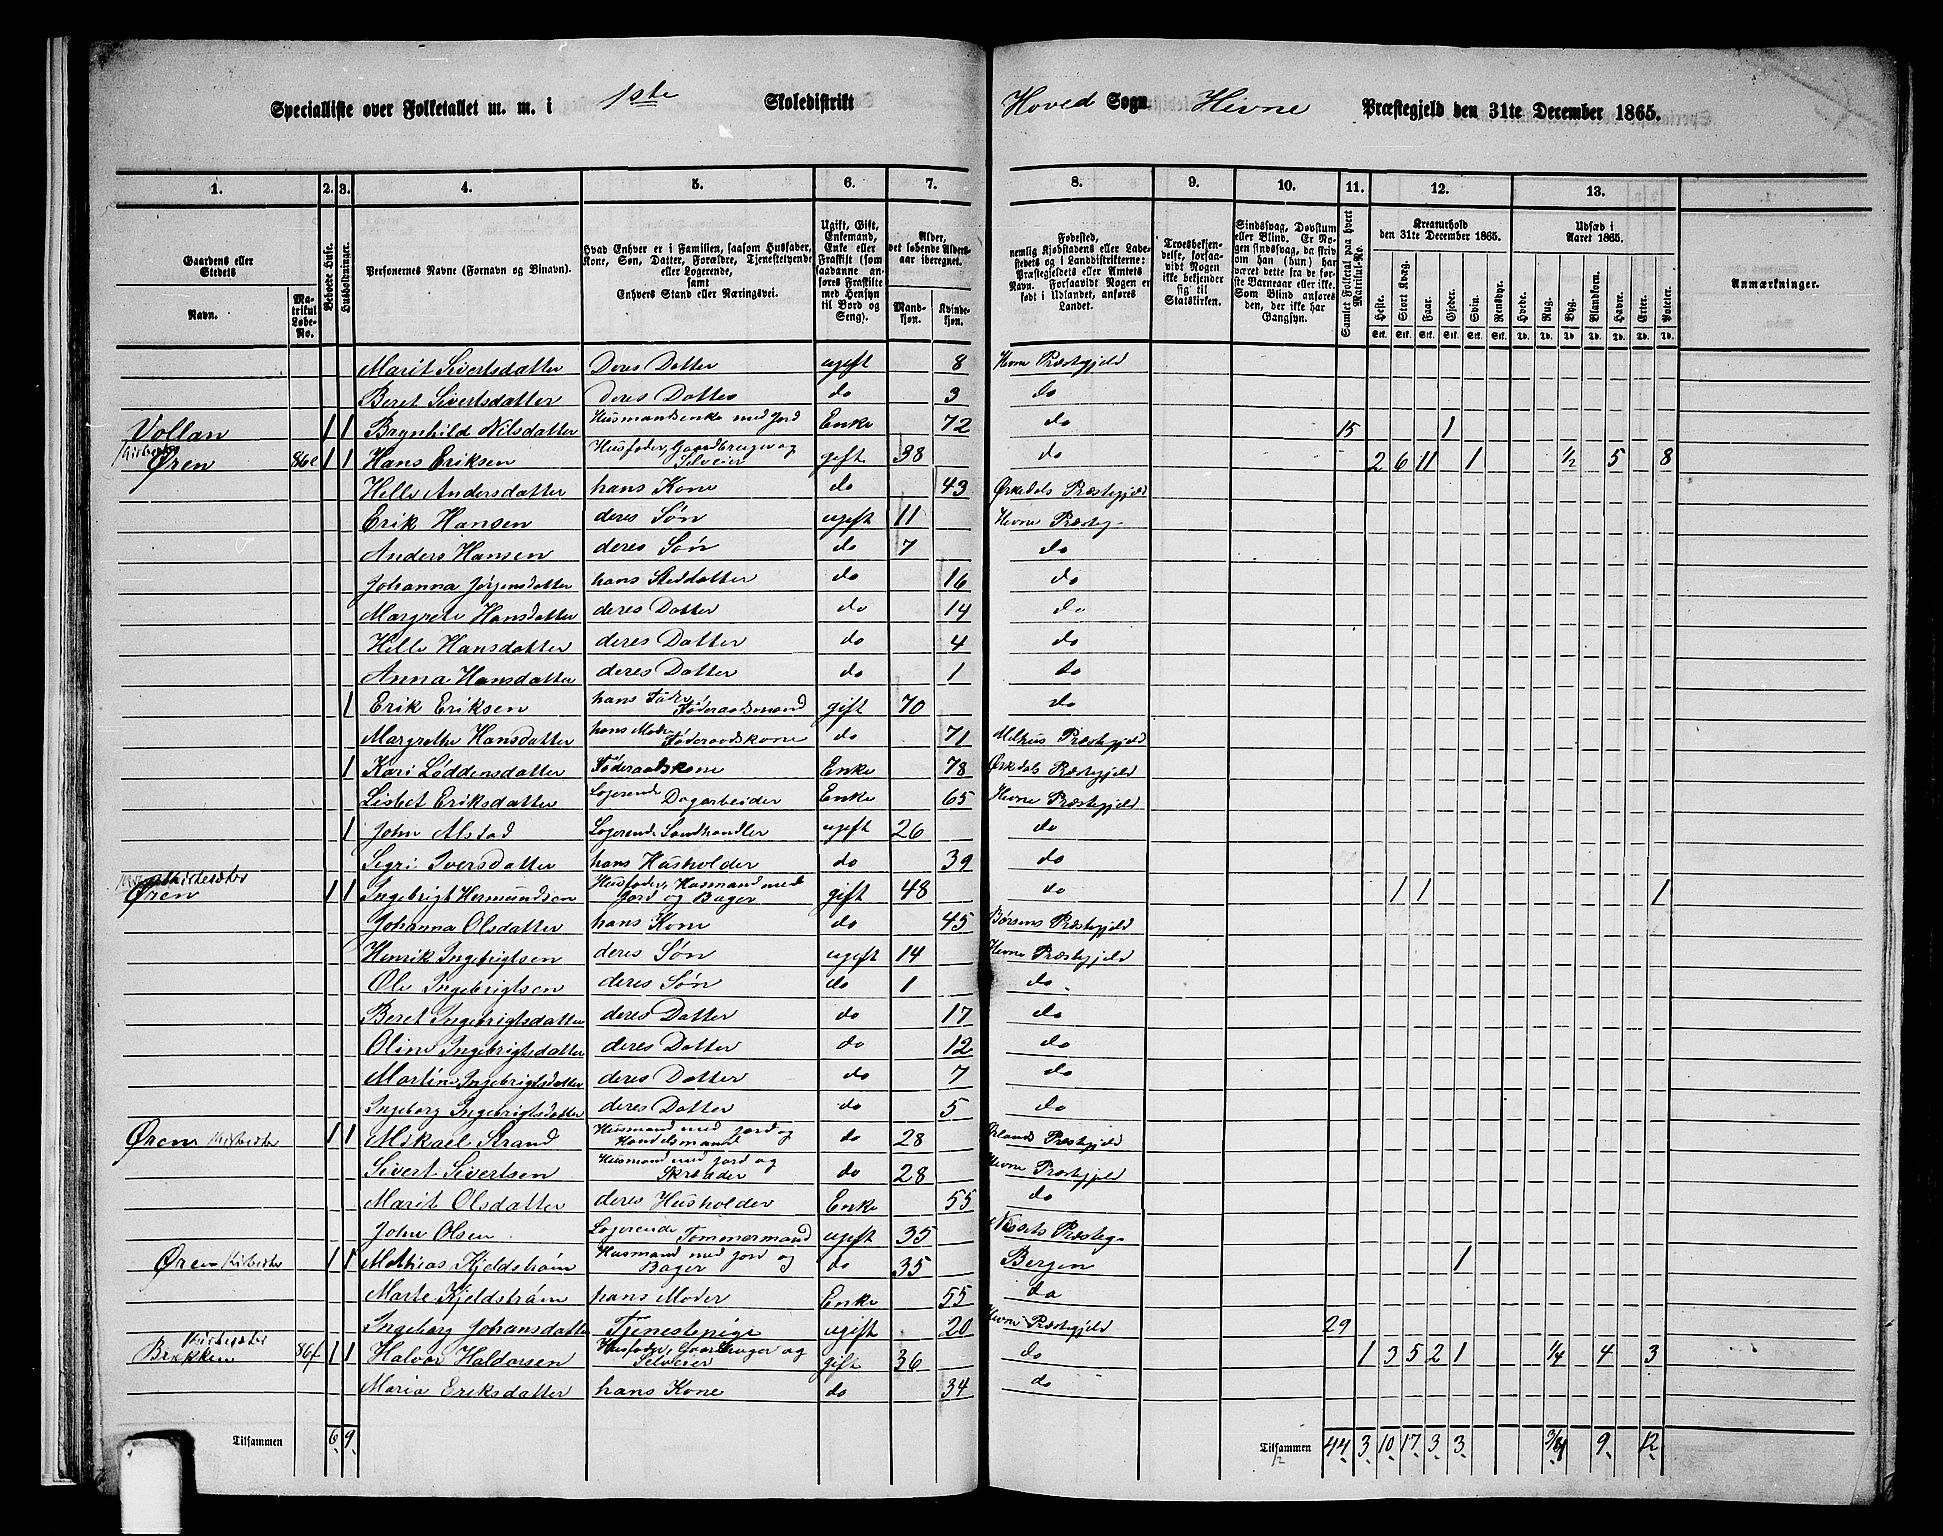 Specialliste over Folketallet m. m. i 1ste Skoledistrikt Hoved Sogn Hevne Præstegjeld den 31te December 1865.
1. 2. 3. 4. 5. 6. 7. 8. 9. 10. 11. 12. 13.
Gaardens eller Stedets
Navn. Matrikul Løbe-No.
Beboede Huse.
Husholdninger.
Personernes Navne (Fornavn og Binavn).
Hvad Enhver er i Familien, saasom Husfader, Kone, Søn, Datter, Forældre, Tjenestetyende eller Logerende, samt Enhvers Stand eller Næringsvei.
Ugift, Gift, Enkemand, Enke eller Fraskilt (som saadanne anføres Fraskilte med Hensyn til Bord og Seng).
Alder, det løbende Aldersaar iberegnet.
Mandkjøn. Kvindekjøn.
Fødested, nemlig Kjøbstadens eller Ladestedets og i Landdistrikterne: Præstegjeldets eller Amtets Navn. Forsaavidt Nogen er født i Udlandet, anføres Landet.
Troesbekjendelse, forsaavidt Nogen ikke bekjender sig til Statskirken.
Sindssvag, Døvstum eller Blind. Er Nogen sindssvag, da skriv om han (hun) har været dette fra de første Barneaar eller ikke. Som Blind anføres den, der ikke har Gangsyn.
Samlet Folketal paa hvert Matrikul-No.
Kreaturhold den 31te December 1865.
Heste. Stort Kvæg. Faar. Gjeder. Svin. Rensdyr.
Udsæd i Aaret 1865.
Hvede. Rug. Byg. Blandkorn. Havre. Erter. Poteter.
Anmærkninger.
Marit Sivertsdatter Deres Datter ugift 8 Hevne Præstegjeld
Beret Sivertsdatter deres Datter do 3 do
Vollan 1 1 Brynhild Nilsdatter Husmandsenke med Jord Enke 72 do 15 1
Øren 86e 1 1 Hans Eriksen Husfader, Gaardbruger og Selveier gift 38 do 2 6 11 1 1/2 5 8
Helle Andersdatter hans Kone do 43 Ørkedals Præstegjeld
Erik Hansen deres Søn ugift 11 Hevne Præsteg
Anders Hansen deres Søn do 7 do
Johanna Jørgensdatter hans Steddatter do 16 do
Margrete Hansdatter deres Datter do 14 do
Helle Hansdatter deres Datter do 4 do
Anna Hansdatter deres Datter do 1 do
1 Erik Eriksen hans Fader, Føderaadsmand gift 70 do
Margrethe Hansdatter hans Moder Føderaadskone do 71 Melhus Præstegjeld
1 Kari Loddensdatter Føderaadskone Enke 78 Ørkedals Præstegjeld
Lisbet Eriksdatter Logerende Dagarbeider Enke 65 Hevne Præstegjeld
1 John Alstad Logerende Landhandler ugift 26 do
Segri Iversdatter hans Husholder do 39 do
Kirksæter
Øren 1 1 Ingebrigt Hermundsen Husfader, Husmand med Jord og Bager gift 48 do 1 1 1
Johanna Olsdatter hans Kone do 45 Børsens Præstegjeld
Henrik Ingebrigtsen deres Søn ugift 14 Hevne Præstegjeld
Ole Ingebrigtsen deres Søn do 1 do
Beret Ingebrigtsdatter deres Datter do 17 do
Oline Ingebrigtsdatter deres Datter do 12 do
Martine Ingebrigtsdatter deres Datter do 7 do
Ingeborg Ingebrigtsdatter deres Datter do 5 do
Øren Kirksæter 1 1 Mikael Strand Husmand med Jord og Handelsmand do 28 Ørlands Præstegjeld
Sivert Sivertsen Husmand med Jord og Skræder do 28 Hevne Præstegjeld
Marit Olsdatter deres Husholder Enke 55 do
John Olsen Logerende Tømmermand ugift 35 Næssets Præsteg
Øren Kirksæter 1 1 Mathias Kjeldstrøm Husmand med Jord og Bager do 35 Bergen 1
Marte Kjeldstrøm hans Moder Enke 55 do
Ingeborg Johansdatter Tjenestepige ugift 20 Hevne Præstegjeld 29
Kirksæter
Brækken 86f 1 1 Halvor Haldorsen Husfader, Gaardbruger og Selveier gift 36 do 1 3 5 2 1 1/4 4 3
Maria Eriksdatter hans Kone do 34 do
Tilsammen 6 9 Tilsammen 44 3 10 17 3 3 3/4 9 12